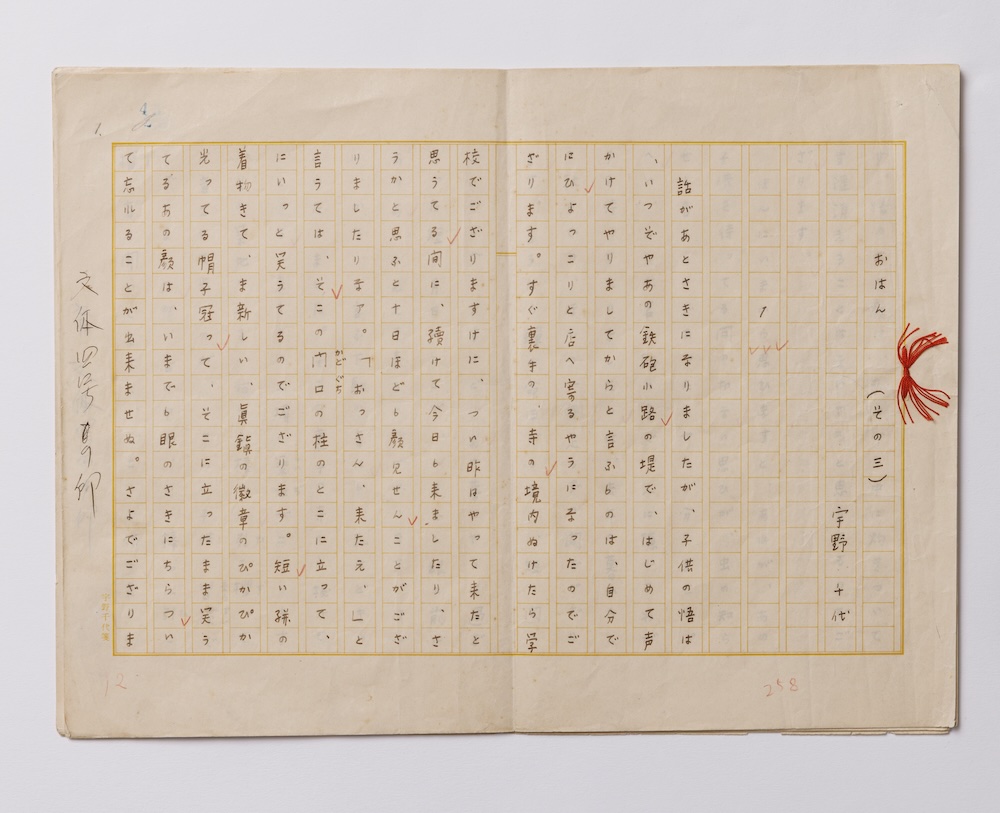 おはん　（その三）
宇野　千代
1
話があとさきになりましたが、子供の悟は
、いつぞやあの鉄砲小路の堤で、はじめて声
かけてやりましてからと言ふものは、自分で
にひよっこりと店へ寄るやうになったのでご
ざります。すぐ裏手の、寺の境内ぬけたら学
校でござりますけに、つい昨はやって来たと
思うてる間に、續けて今日も来ましたり、さ
うかと思ふと十日ほども顔見せんことがござ
りましたりなア。「おっさん、来たえ、」と
かどぐち
言うては、そこの門口の柱のとこに立って、
にいっと笑うてるのでござります。短い絣の
着物きて、ま新しい、眞鍮の徽章のぴかぴか
光ってる帽子冠って、そこに立ったまま笑う
てるあの顔は、いまでも眼のさきにちらつい
て忘れることが出来ませぬ。さよでござりま
文体四号
宇野千代箋
258
12